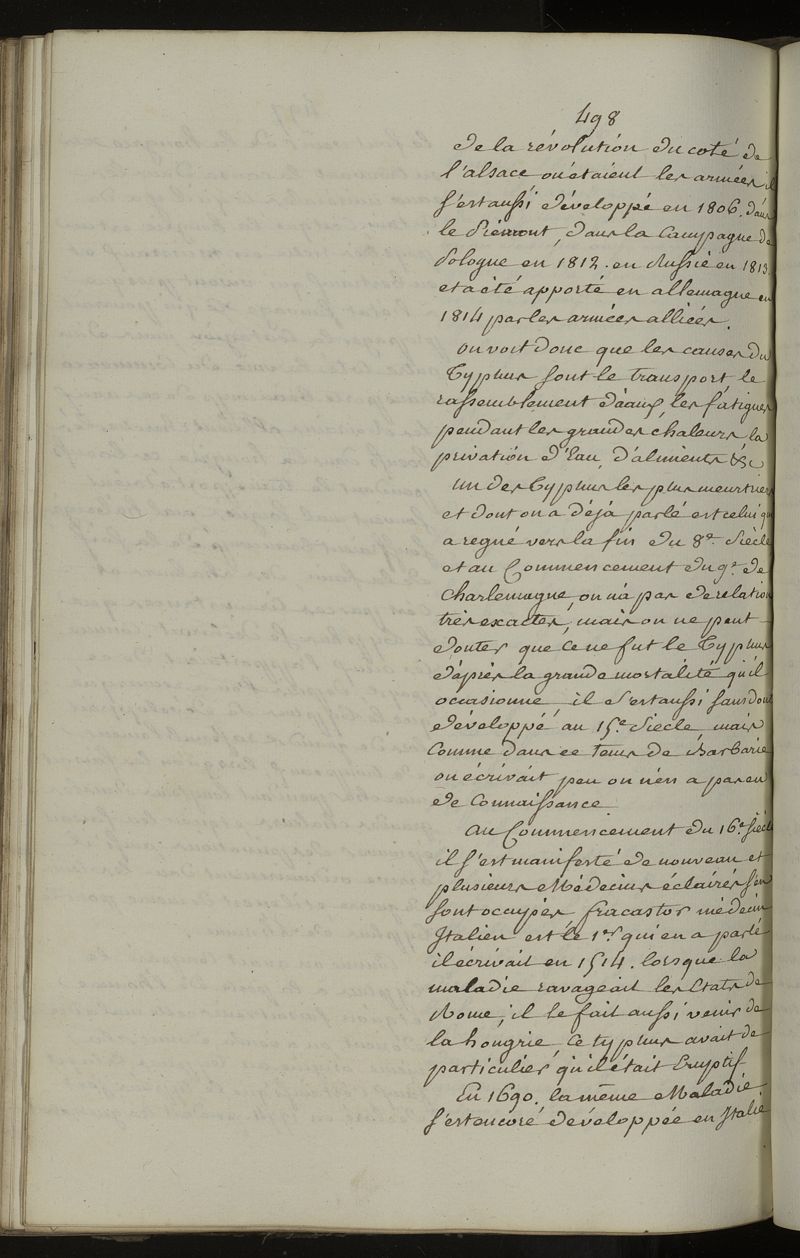 498
de la révolution du coté de
l'alsace où étaient les armées il
s'est aussi développé en 1806. dans
le Piémont, dans la Campagne de
Pologne en 1812. en Russie en 1813.
et a été apporté en allemagne en
1814 par les armées alliées.
on voit donc que les causes du
Typhus sont le transport, le
rassemblement les fatigues
pendant les grandes chaleurs la
privation d'Eau, d'aliments &c
un des Typhus les plus meurtriers
et dont on a déjà parlé est celui qui
a regné vers la fin du 8e. Siècle
et au Commencement du 9e. de
Charlemagne, on n'a pas de relation
très exactes, mais on ne peut
douter que ce ne fut le Typhus
d'après la grande mortalité qu'il
occasionne il s'est aussi sans doute
développé au 15e. Siecle, mais
Comme dans ce tems de Barbarie
on écrivait peu on n'en a pas eu
de Connaissance
au Commencement du 16e. siècle
il s'est manifesté de nouveau et
plusieurs Médecins éclairés s'en
sont occupés, fracastor médecin
Italien est le 1er. qui en a parlé
il écrivait en 1514. lorsque la
maladie ravageait les Etats de
Rome, il le fait aussi venir de
la hongrie, Ce typhus avait de
particulier qu'il était Eruptif
En 1690. la même Maladie
s'est encore développée en Italie